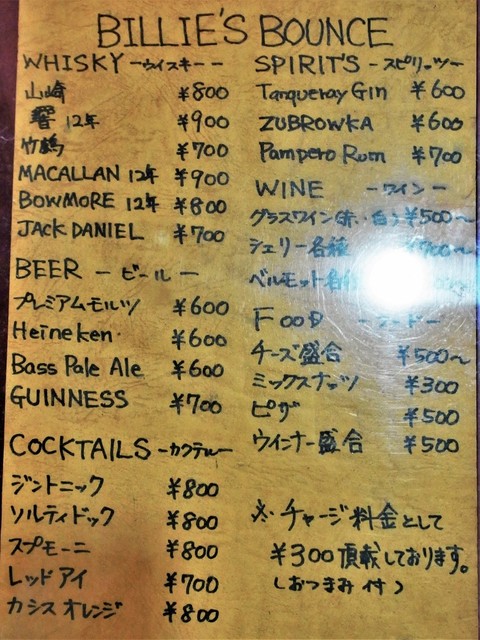 BILLIE'S BOUNCE
WHISKY -ウイスキー-
山崎 ¥800
響 12年 ¥900
竹鶴 ¥700
MACALLAN 12年 ¥900
BOWMORE 12年 ¥800
JACK DANIEL ¥700
BEER - ビール -
プレミアムモルツ ¥600
Heineken ¥600
Bass Pale Ale ¥600
GUINNESS ¥700
COCKTAILS -カクテル-
ジントニック ¥800
ソルティドック ¥800
スプモーニ ¥800
レッドアイ ¥700
カシスオレンジ ¥800
SPIRIT'S -スピリッツ-
Tanqueray Gin ¥600
ZUBROWKA ¥600
Pampero Rum ¥700
WINE -ワイン-
グラスワイン(赤・白) ¥500~
シェリー各種 ¥700~
ベルモット各種
FOOD -フード-
チーズ盛合 ¥500~
ミックスナッツ ¥300
ピザ ¥500
ウインナー盛合 ¥500
※チャージ料金として
¥300頂戴しております。
(おつまみ付)